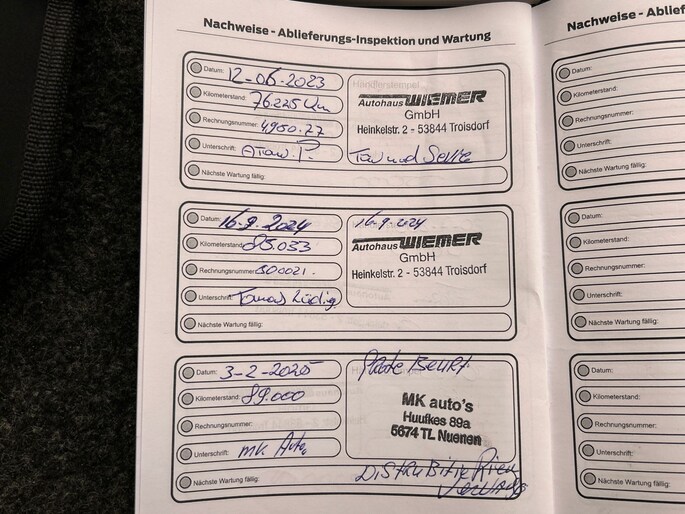 Nachweise - Ablieferungs-Inspektion und Wartung
Datum: 12-06-2023
Kilometerstand: 76225 Km
Rechnungsnummer: 4950.27
Unterschrift:
Nächste Wartung fällig:
Händlerstempel
Autohaus WIEMER
GmbH
Heinkelstr. 2 - 53844 Troisdorf
Tüv und
Datum: 16-9-2024
Kilometerstand: 85.033
Rechnungsnummer: 300021.
Unterschrift: Tomas
Nächste Wartung fällig:
16-9-2024
Autohaus WIEMER
GmbH
Heinkelstr. 2 - 53844 Troisdorf
Datum: 3-2-2025
Kilometerstand: 89.000
Rechnungsnummer:
Unterschrift: MK Auto
Nächste Wartung fällig:
Grote Beurt
MK auto's
Huufkes 89a
5674 TL Nuenen
Distributie Riem
Nachweise - Ablief
Datum:
Kilometerstand:
Rechnungsnummer:
Unterschrift:
Nächste Wartung fällig:
Datum:
Kilometerstand:
Rechnungsnummer:
Unterschrift:
Nächste Wartung fällig:
Datum:
Kilometerstand:
Rechnungsnummer:
Unterschrift:
Nächste Wartung fällig: